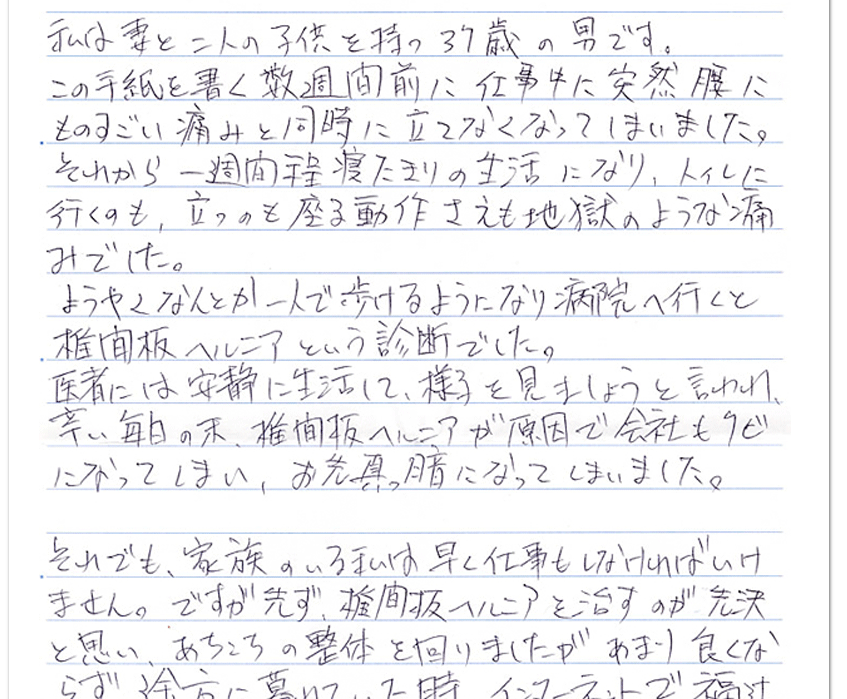 私は妻と二人の子供を持つ37歳の男です。
この手紙を書く数週間前に仕事中に突然腰に
ものすごい痛みと同時に立てなくなってしまいました。
それから一週間程寝たきりの生活になり、トイレに
行くのも、立つのも座る動作さえも地獄のような痛
みでした。
ようやくなんとか一人で歩けるようになり病院へ行くと
椎間板ヘルニアという診断でした。
医者には安静に生活して、様子を見ましょうと言われ、
辛い毎日の末、椎間板ヘルニアが原因で会社もクビ
になってしまい、お先真っ暗になってしまいました。
それでも、家族のいる私は早く仕事もしなければいけ
ません。ですが先ず、椎間板ヘルニアを治すのが先決
と思い、あちこちの整体を回りましたがあまり良くな
らず途方に暮れていた時、インターネットで